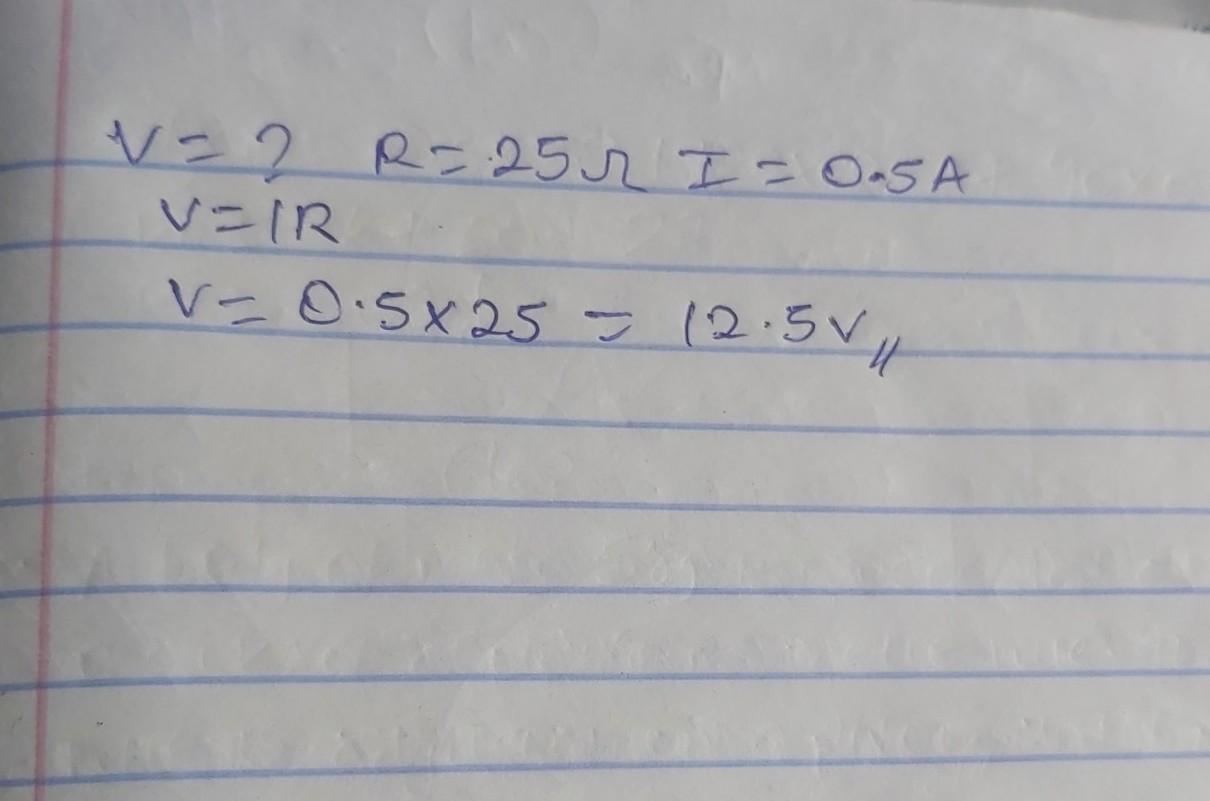 V = ? R = 25Ω I = 0.5A
V = IR
V = 0.5 x 25 = 12.5V,,